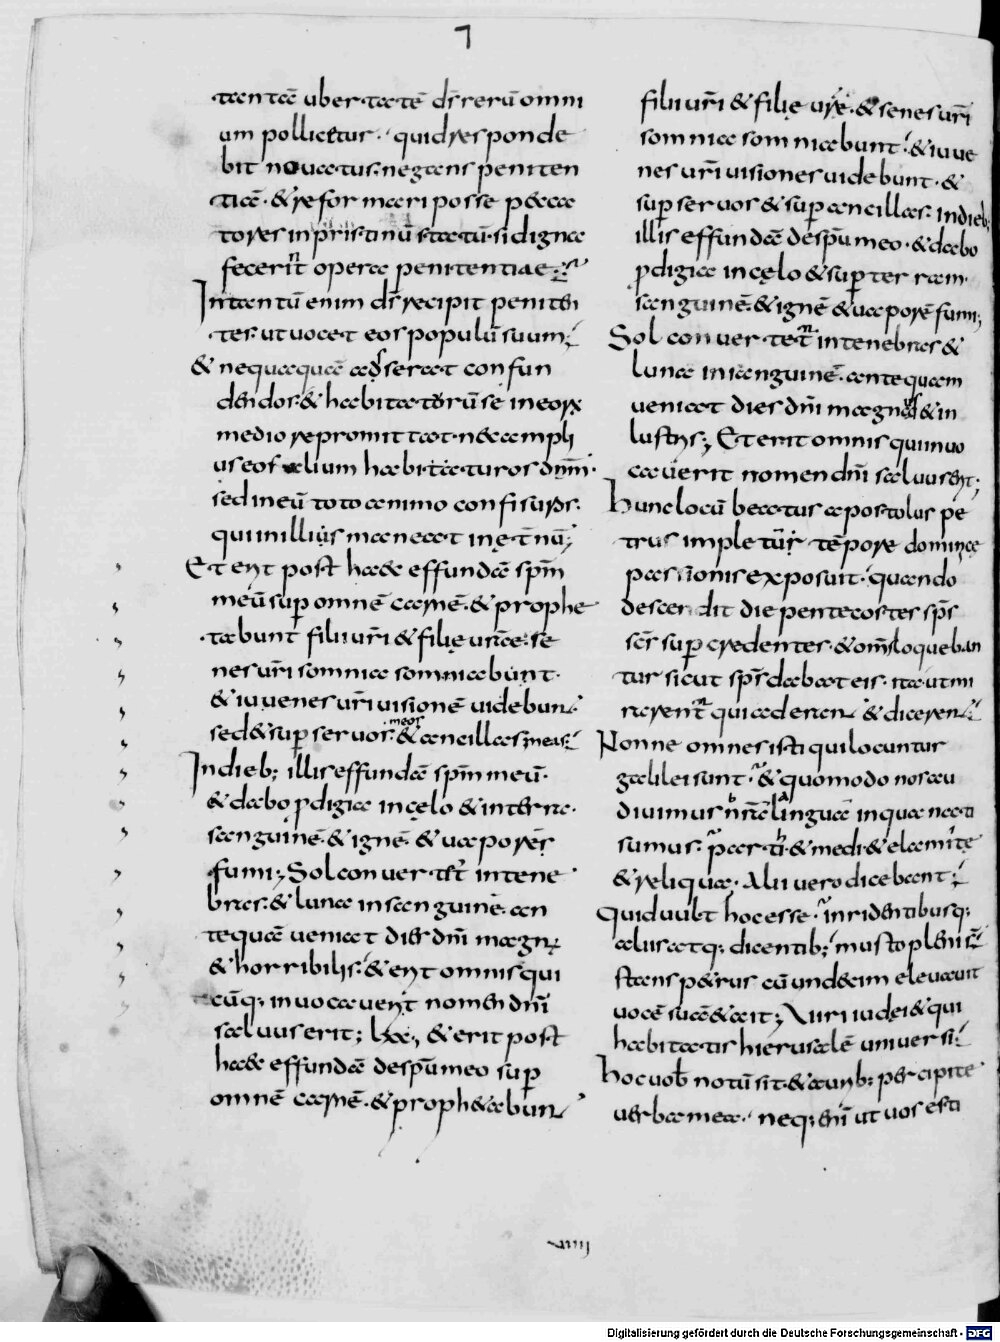 tantā ubertatē dr̄ rerū omni
um pollicetur. quid responde
bit nouatus negans peniten
tiā. & reformari posse pecca
tores in pristinū statū. si digna
fecerint opera penitentiae.
In tantū enim dr̄ recipit peniten
tes. ut uocet eos populū suum;
& nequaquā adserat confun
dendos. & habitaturū se in eorū
medio repromittat. nec ampli
us eos alium habitaturos dnm̄.
sed in eū toto animo confisuros.
qui in illius maneat in ętnū;
Et erit post haec effundā spm̄
meū sup omnē carnē. & prophe
tabunt filii uri & filię urae. se
nes uri somnia somniabunt.
& iuuenes uri uisionē uidebun
sed & sup seruos meos & ancillas meas
In dieb; illis effundā spm̄ meū.
& dabo pdigia in cęlo & in terra.
sanguinē. & ignē. & uaporē
fumi; Sol conuertet in tene
bras. & luna in sanguinē. an
tequā ueniat dies dnī magnus
& horribilis. & erit omnis qui
cūq; inuocauerit nomen dnī
saluus erit; lxx, & erit post
haec effundā de spū meo sup
omnē carnē. & prophetabun
filii uri & filię urę. & senes uri
somnia somniabunt. & iuue
nes uri uisiones uidebunt. &
sup seruos & sup ancillas. in dieb;
illis effundā de spū meo. & dabo
pdigia in cęlo & sup terram.
sanguinē. & ignē & uaporē fumi;
Sol conuertet in tenebras &
luna in sanguinē. antequam
ueniat dies dnī magnus & in
lustris; Et erit omnis qui inuo
cauerit nomen dnī saluus erit;
Hunc locū beatus apostolus pe
trus impletū tēpore dominicę
passionis exposuit. quando
descendit die pentecostes sps̄
scs̄ sup credentes. & oms̄ loqueban
tur sicut sps̄ dabat eis. ita ut mi
rarent qui aderan & diceren
Nonne omnes isti qui locuntur
galilei sunt. & quomodo nos au
diuimus nrā linguā in qua nati
sumus. parti. & medi. & elamitę
& reliqua. Alii uero dicebant;
Quid uult hoc esse. inridentibusq;
aliis atq; dicentib; musto pleni s̄
stans petrus cū undecim eleuauit
uocē suā & ait; Uiri iudęi & qui
habitatis hierusalē uniuersi
Hoc uob notū sit. & aurib; percipite
uerba mea. neq; eni ut uos esti
uiiii
Digitalisierung gefördert durch die Deutsche Forschungsgemeinschaft - DFG